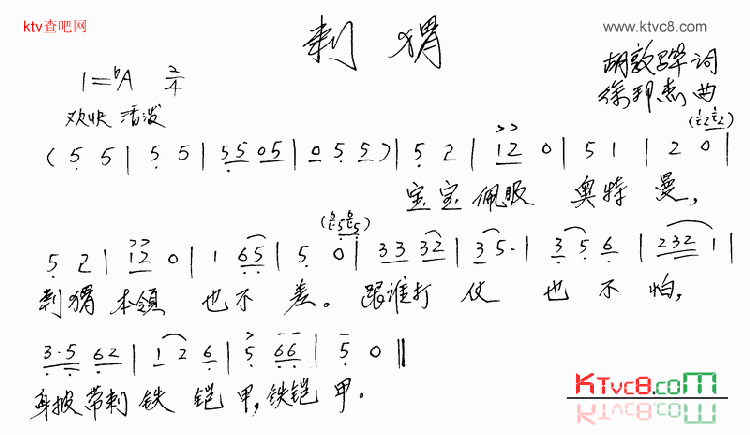 ktv查吧网
www.ktvc8.com
刺猬
1=bA 2/4
胡敦骅词
徐邦杰曲
欢快 活泼
( 5 5 | 5 5 | 55 05 | 0 5 5 ) | 5 2 | 12 0 | 5 1 | 2 0 |
宝宝佩服 奥特曼,
5 2 | 12 0 | 1 65 | 5 0 | 33 32 | 3 5· | 3 5 6 | 232 1 |
刺猬本领 也不差。跟谁打仗 也不怕,
3·5 62 | 1 2 6 | 5 66 | 5 0 ||
身披带刺铁铠甲,铁铠甲。
KTvc8.com